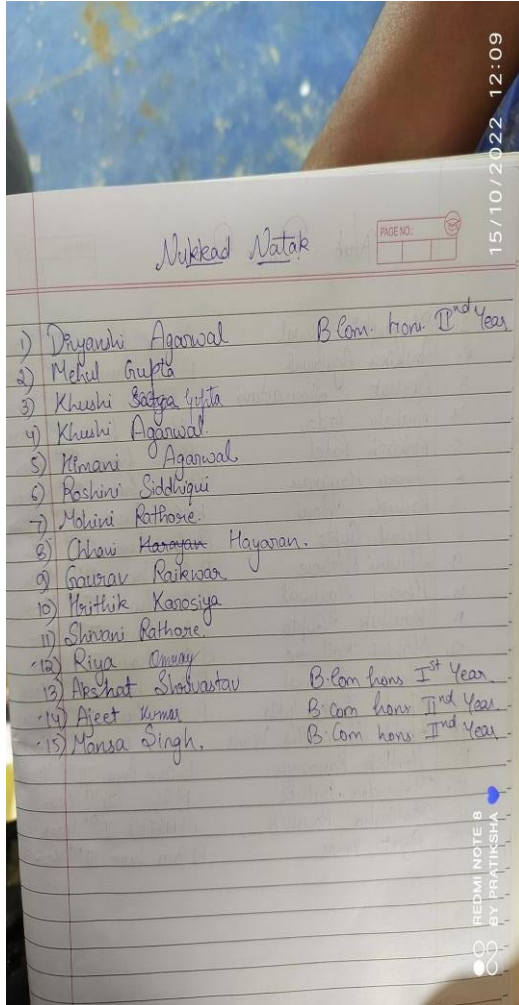 Nukkad Natak
PAGE NO.:
1) Divyanshi Agarwal B Com. hons. IInd Year
2) Mehul Gupta
3) Khushi Gupta
4) Khushi Agarwal.
5) Himani Agarwal
6) Roshini Siddhiqui
7) Mohini Rathore.
8) Chhavi Harayan Hayaran.
9) Gaurav Raikwar
10) Hrithik Karosiya
11) Shivani Rathore.
12) Riya Omray
13) Akshat Shrivastav B.Com hons Ist Year.
14) Ajeet Kumar B.Com hons IInd Year
15) Mansa Singh. B.Com hons IInd Year
15/10/2022 12:09
REDMI NOTE 8
BY PRATIKSHA